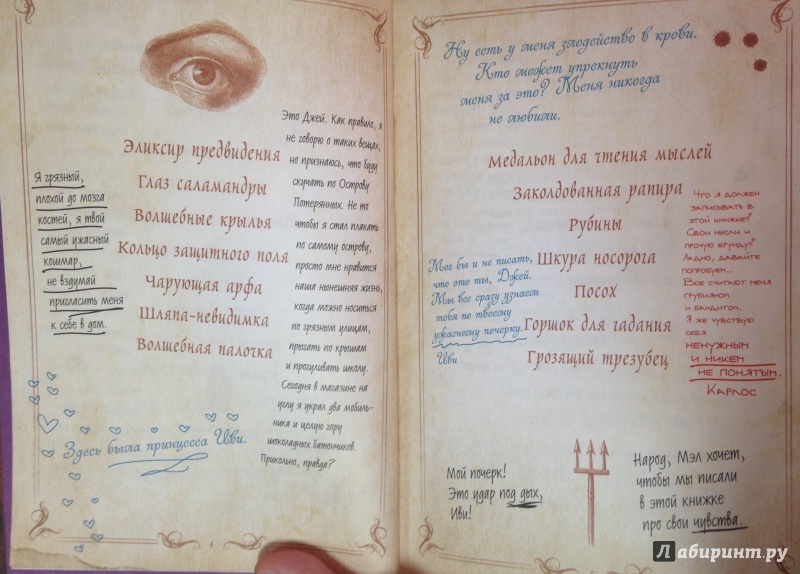 Эликсир предвидения
Глаз саламандры
Волшебные крылья
Кольцо защитного поля
Чарующая арфа
Шляпа-невидимка
Волшебная палочка
Я грязный,
плохой до мозга
костей, я твой
самый ужасный
кошмар,
не вздумай
пригласить меня
к себе в дом.
Это Джей. Как правило, я
не говорю о таких вещах,
но признаюсь, что буду
скучать по Острову
Потерянных. Не то
чтобы я стал плакать
по самому острову,
просто мне нравится
наша нынешняя жизнь,
когда можно носиться
по грязным улицам,
прыгать по крышам
и прогуливать школу.
Сегодня в магазине на
углу я украл два мобиль-
ника и целую гору
шоколадных батончиков.
Прикольно, правда?
Здесь была принцесса Иви.
Ну есть у меня злодейство в крови.
Кто может упрекнуть
меня за это? Меня никогда
не любили.
Медальон для чтения мыслей
Заколдованная рапира
Рубины
Шкура носорога
Посох
Горшок для гадания
Грозящий трезубец
Мог бы и не писать,
что это ты, Джей.
Мы все сразу узнаем
тебя по твоему
ужасному почерку.
Иви
Что я должен
записывать в
этой книжке?
Свои мысли и
прочую ерунду?
Ладно, давайте
попробуем...
Все считают меня
грубияном
и бандитом.
Я же чувствую
себя
ненужным
и никем
не понятым.
Карлос
Мой почерк!
Это удар под дых,
Иви!
Народ, Мэл хочет,
чтобы мы писали
в этой книжке
про свои чувства.
Лабиринт.ру